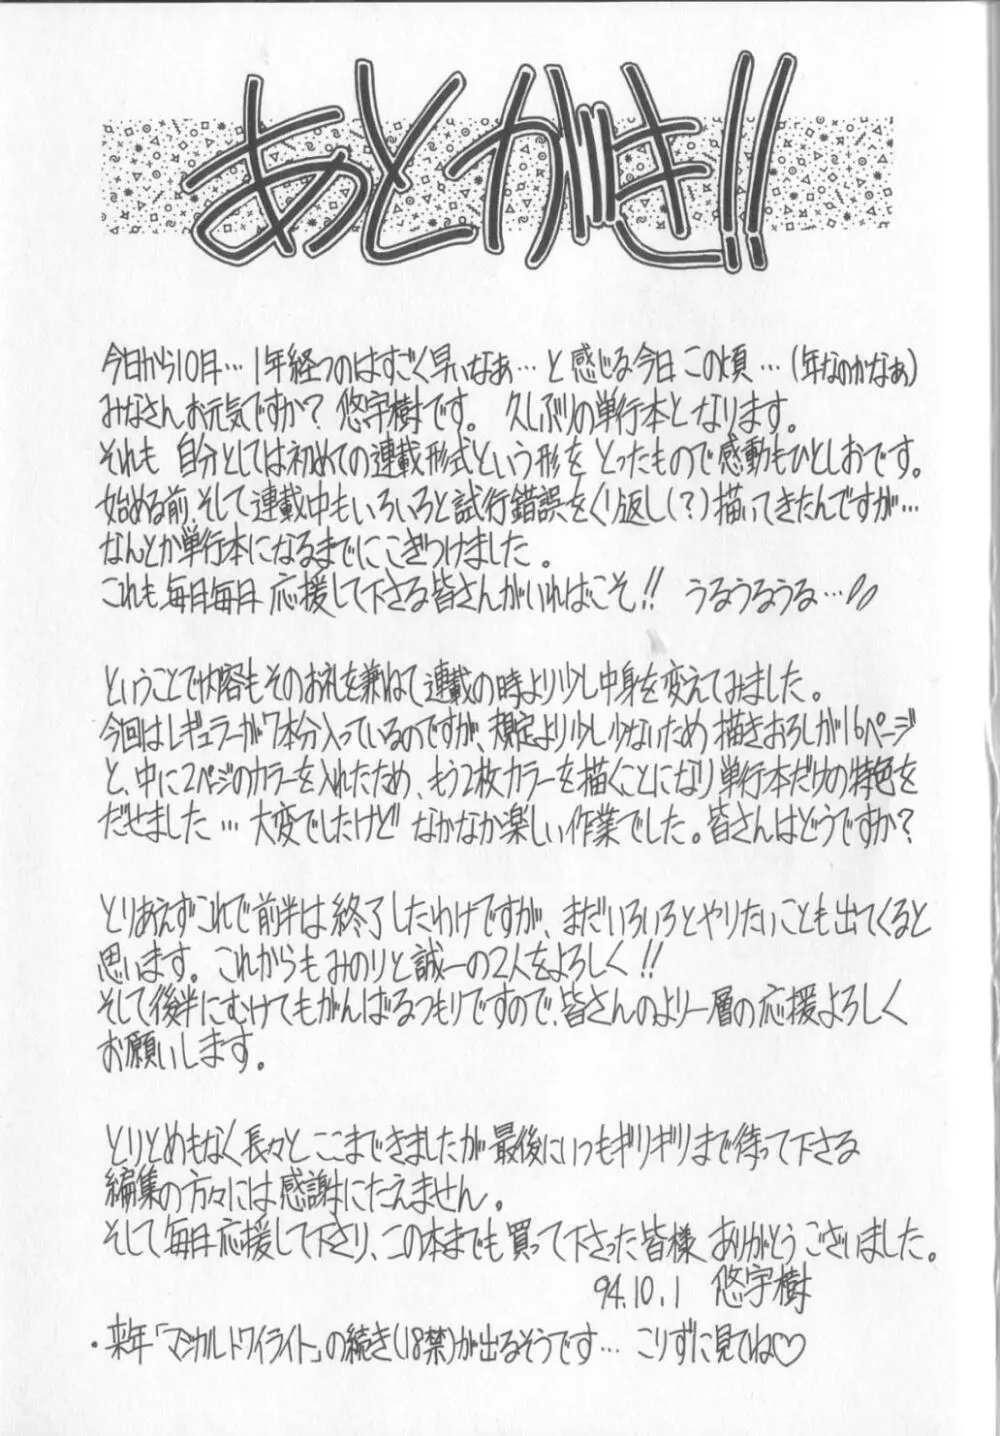 あとがき!!
今日から10月…1年経つのはすごく早いなぁ…と感じる今日この頃…(年なのかなぁ)
みなさんお元気ですか?悠宇樹です。久しぶりの単行本となります。
それも自分としては初めての連載形式という形をとったもので感動もひとしおです。
始める前、そして連載中もいろいろと試行錯誤をくり返し(?)描いてきたんですが…
なんとか単行本になるまでにこぎつけました。
これも毎日毎日応援して下さる皆さんがいればこそ!! うるうるうる…
ということで内容もそのお礼を兼ねて連載の時より少し中身を変えてみました。
今回はレギュラーが7本分入っているのですが、規定より少し少ないため描きおろしが16ページ
と、中に2ページのカラーを入れたため、もう2枚カラーを描くことになり単行本だけの特色を
だせました…大変でしたけどなかなか楽しい作業でした。皆さんはどうですか?
とりあえずこれで前半は終了したわけですが、まだいろいろとやりたいことも出てくると
思います。これからもみのりと誠一の2人をよろしく!!
そして後半にむけてもがんばるつもりですので、皆さんのより一層の応援よろしく
お願いします。
とりとめもなく長々とここまできましたが最後にいつもギリギリまで待って下さる
編集の方々には感謝にたえません。
そして毎日応援して下さり、この本までも買って下さった皆様ありがとうございました。
94.10.1 悠宇樹
・来年「マジカルトワイライト」の続き(18禁)が出るそうです…こりずに見てね♡